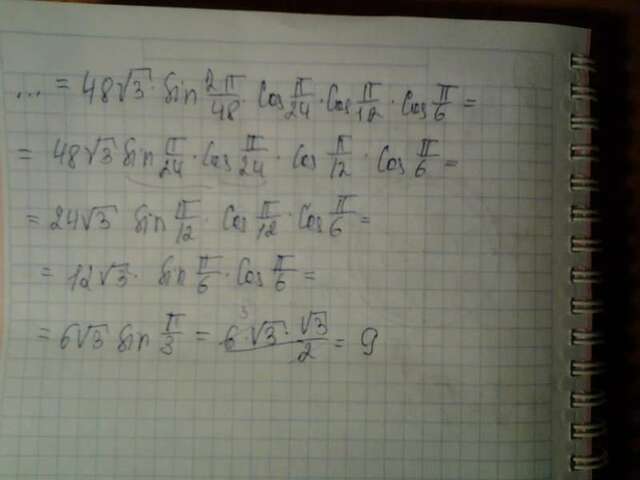 ... = 48√3 · sin 2π/48 · cos π/24 · cos π/12 · cos π/6 =
= 48√3 sin π/24 · cos π/24 · cos π/12 · cos π/6 =
= 24√3 sin π/12 · cos π/12 · cos π/6 =
= 12√3 · sin π/6 · cos π/6 =
= 6√3 sin π/3 = 6 · √3 · √3/2 = 9